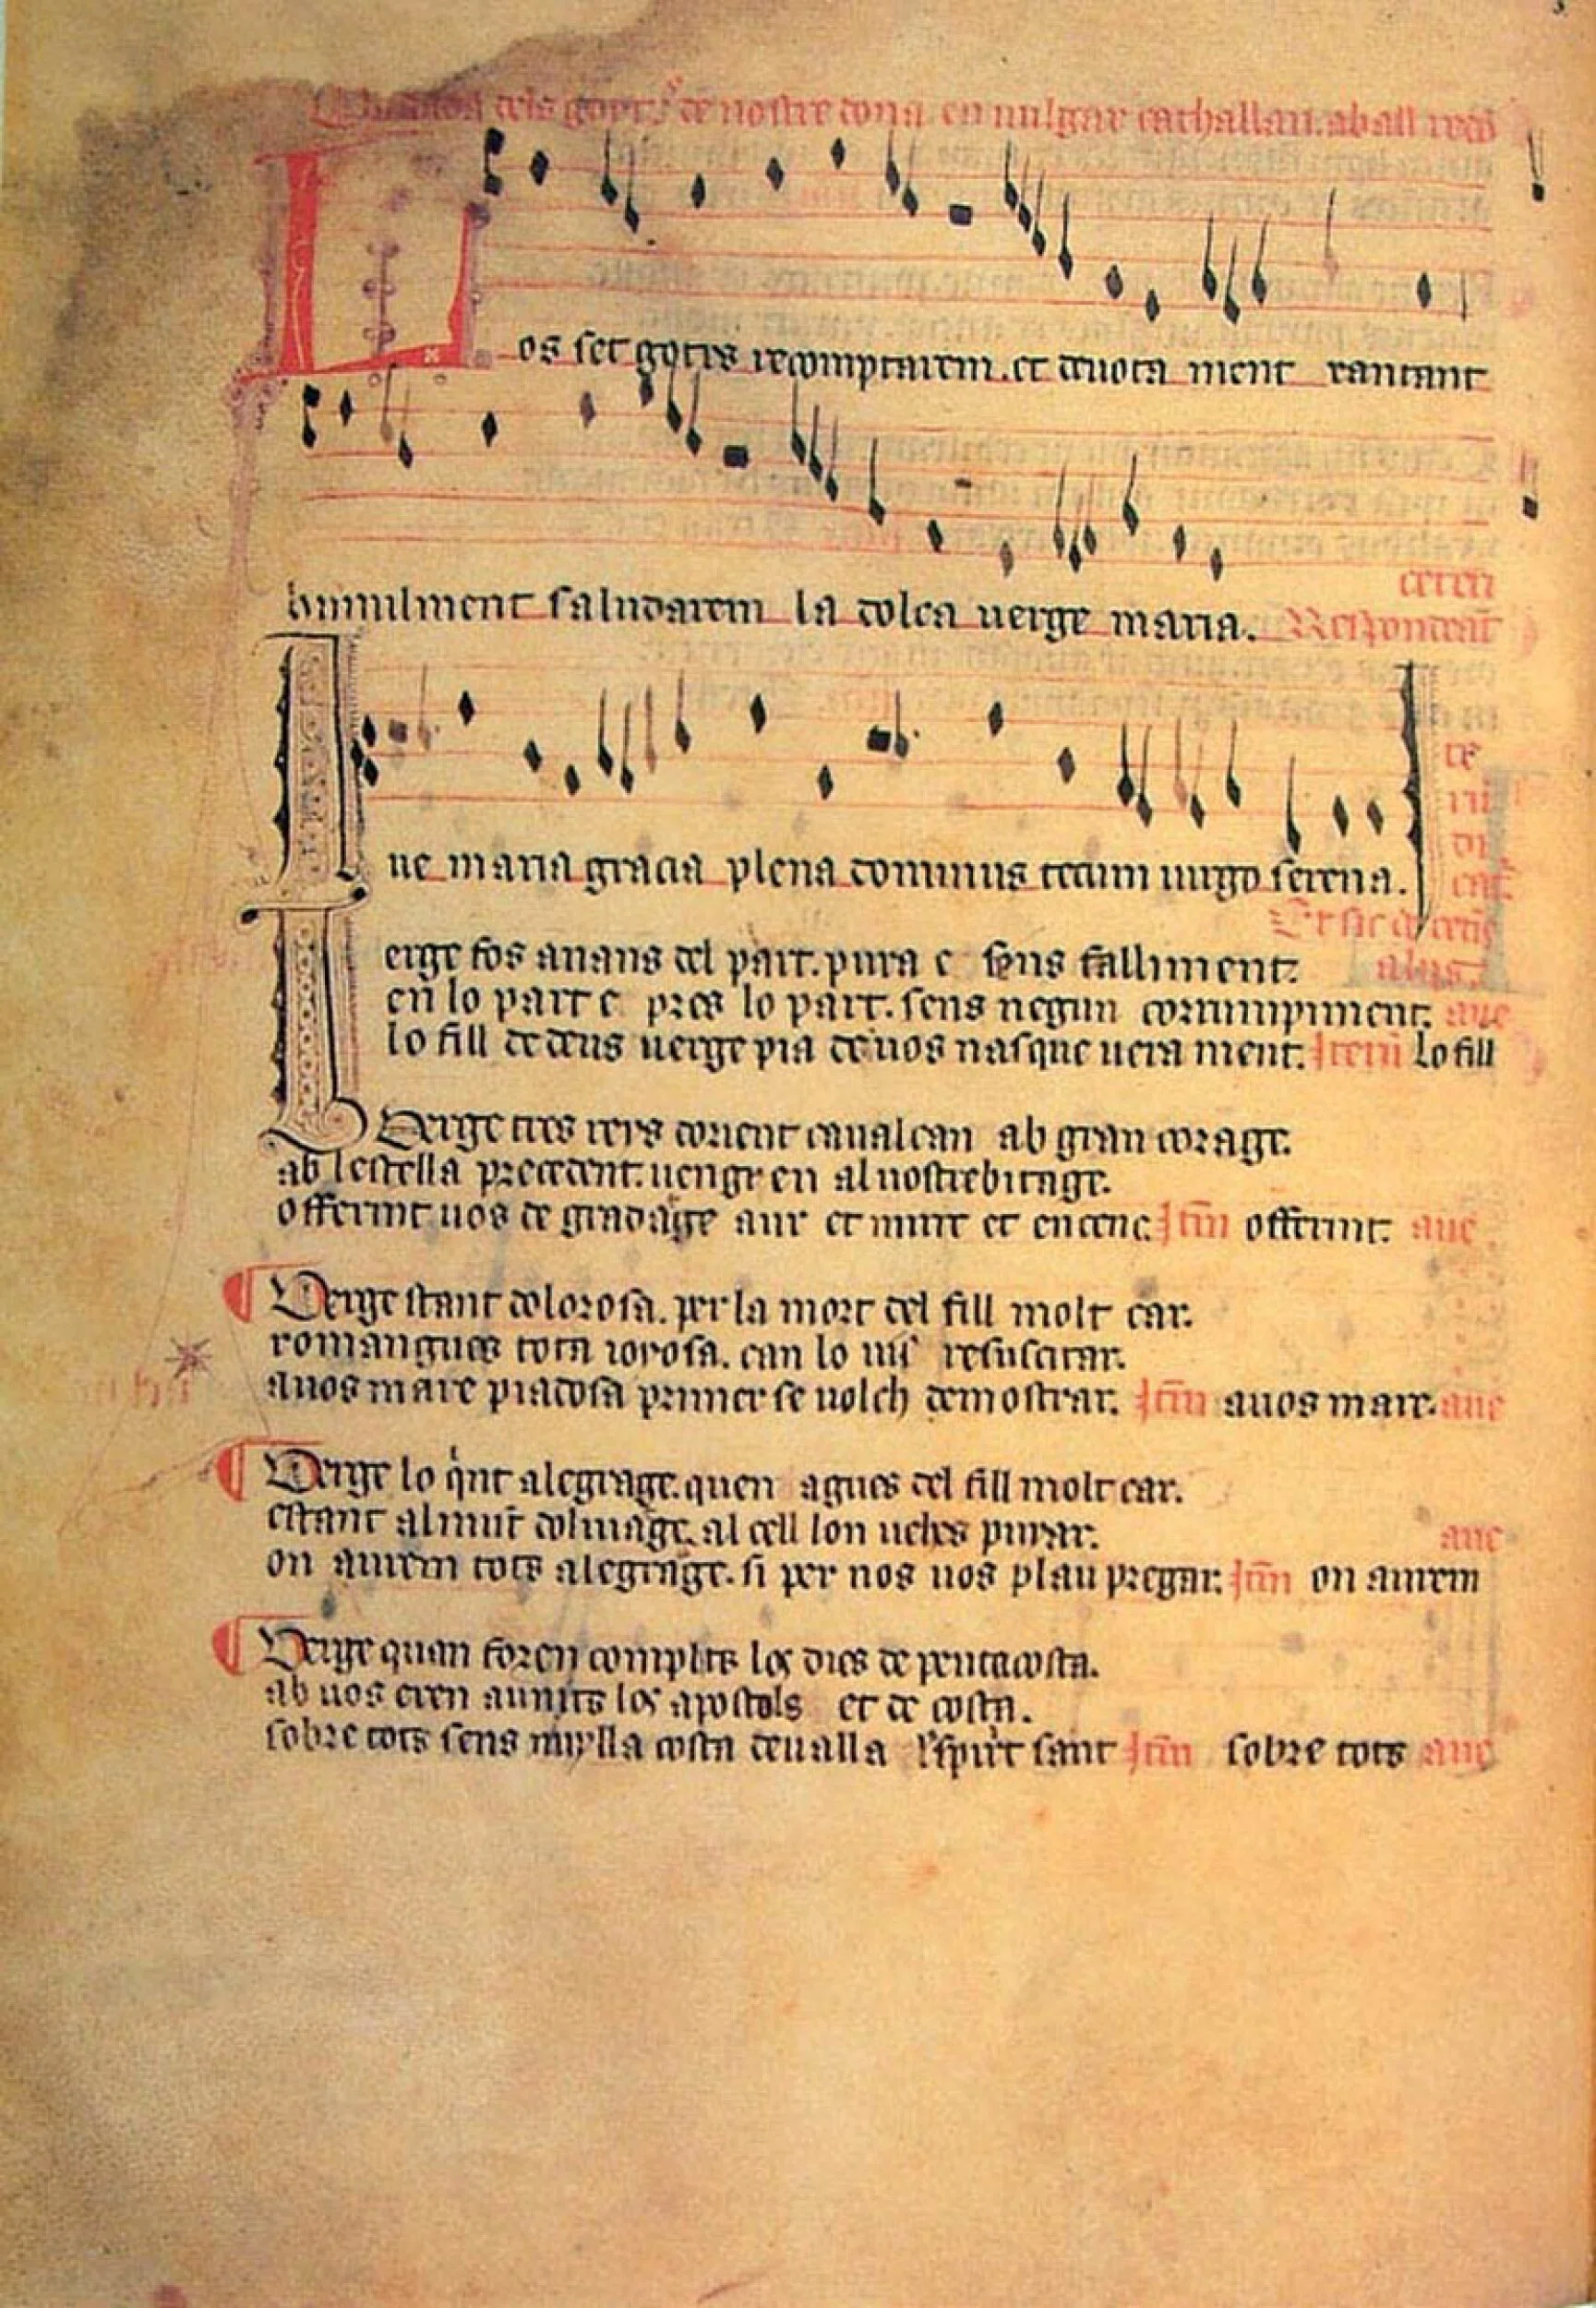 dels goyts de nostre dona en uulgar cathallan. a ball redo
Los set gotxs recomptarem. et deuota ment xantant
humilment saludarem la dolça uerge maria.
ceteri
Respondent
Aue maria gracia plena dominus tecum uirgo serena.
Et sic
alus
Verge fos anans del part. pura e sens falliment.
en lo part e pres lo part. sens negun corrumpiment. aue
lo fill de deus uerge pia de uos nasque uera ment. Item lo fill
Verge tres reys dorient caualcan ab gran corage.
ab lestella precedent. uengren al uostrebitage.
offerint uos de gradatge aur et mirr et encenc. Itm offerint. aue
Verge stant dolorosa. per la mort del fill molt car.
romangues tota ioyosa. can lo uis resuscitar.
auos mare piadosa primer se uolch demostrar. Itm auos mare. aue
Verge lo qint alegrage. quen agues del fill molt car.
estant al munt doliuage. al cell lon ueses puyar. aue
on aurem tots alegrage. si per nos uos plau pregar. Itm on aurem
Verge quan foren complits los dies de pentacosta.
ab uos eren aunits los apostols et de costa.
sobre tots sens nuylla costa deualla lespirit sant Itm sobre tots aue